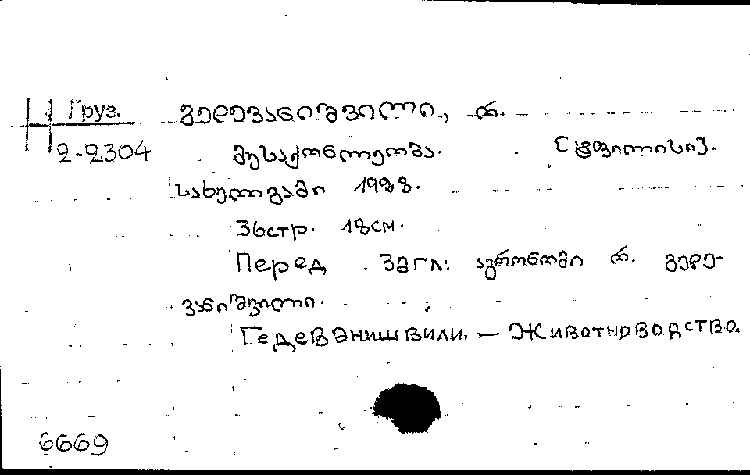 Н Груз. გედევანიშვილი, რ.
2-2304 მესაქონლეობა. [ტფილისი].
სახელგამი 1928.
36стр. 18см.
Перед загл: აგრონომი რ. გედე-
ვანიშვილი.
Гедеванишвили. — Животноводство.
6669